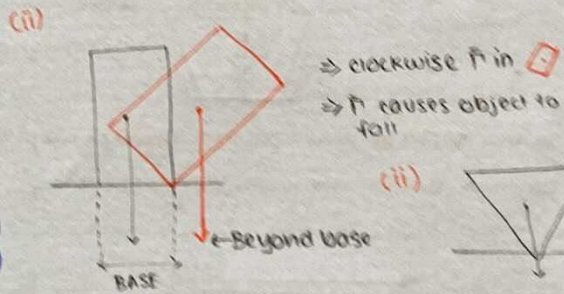 (ii)
⇒ clockwise Γ in
⇒ Γ causes object to
fall
(ii)
←Beyond base
BASE